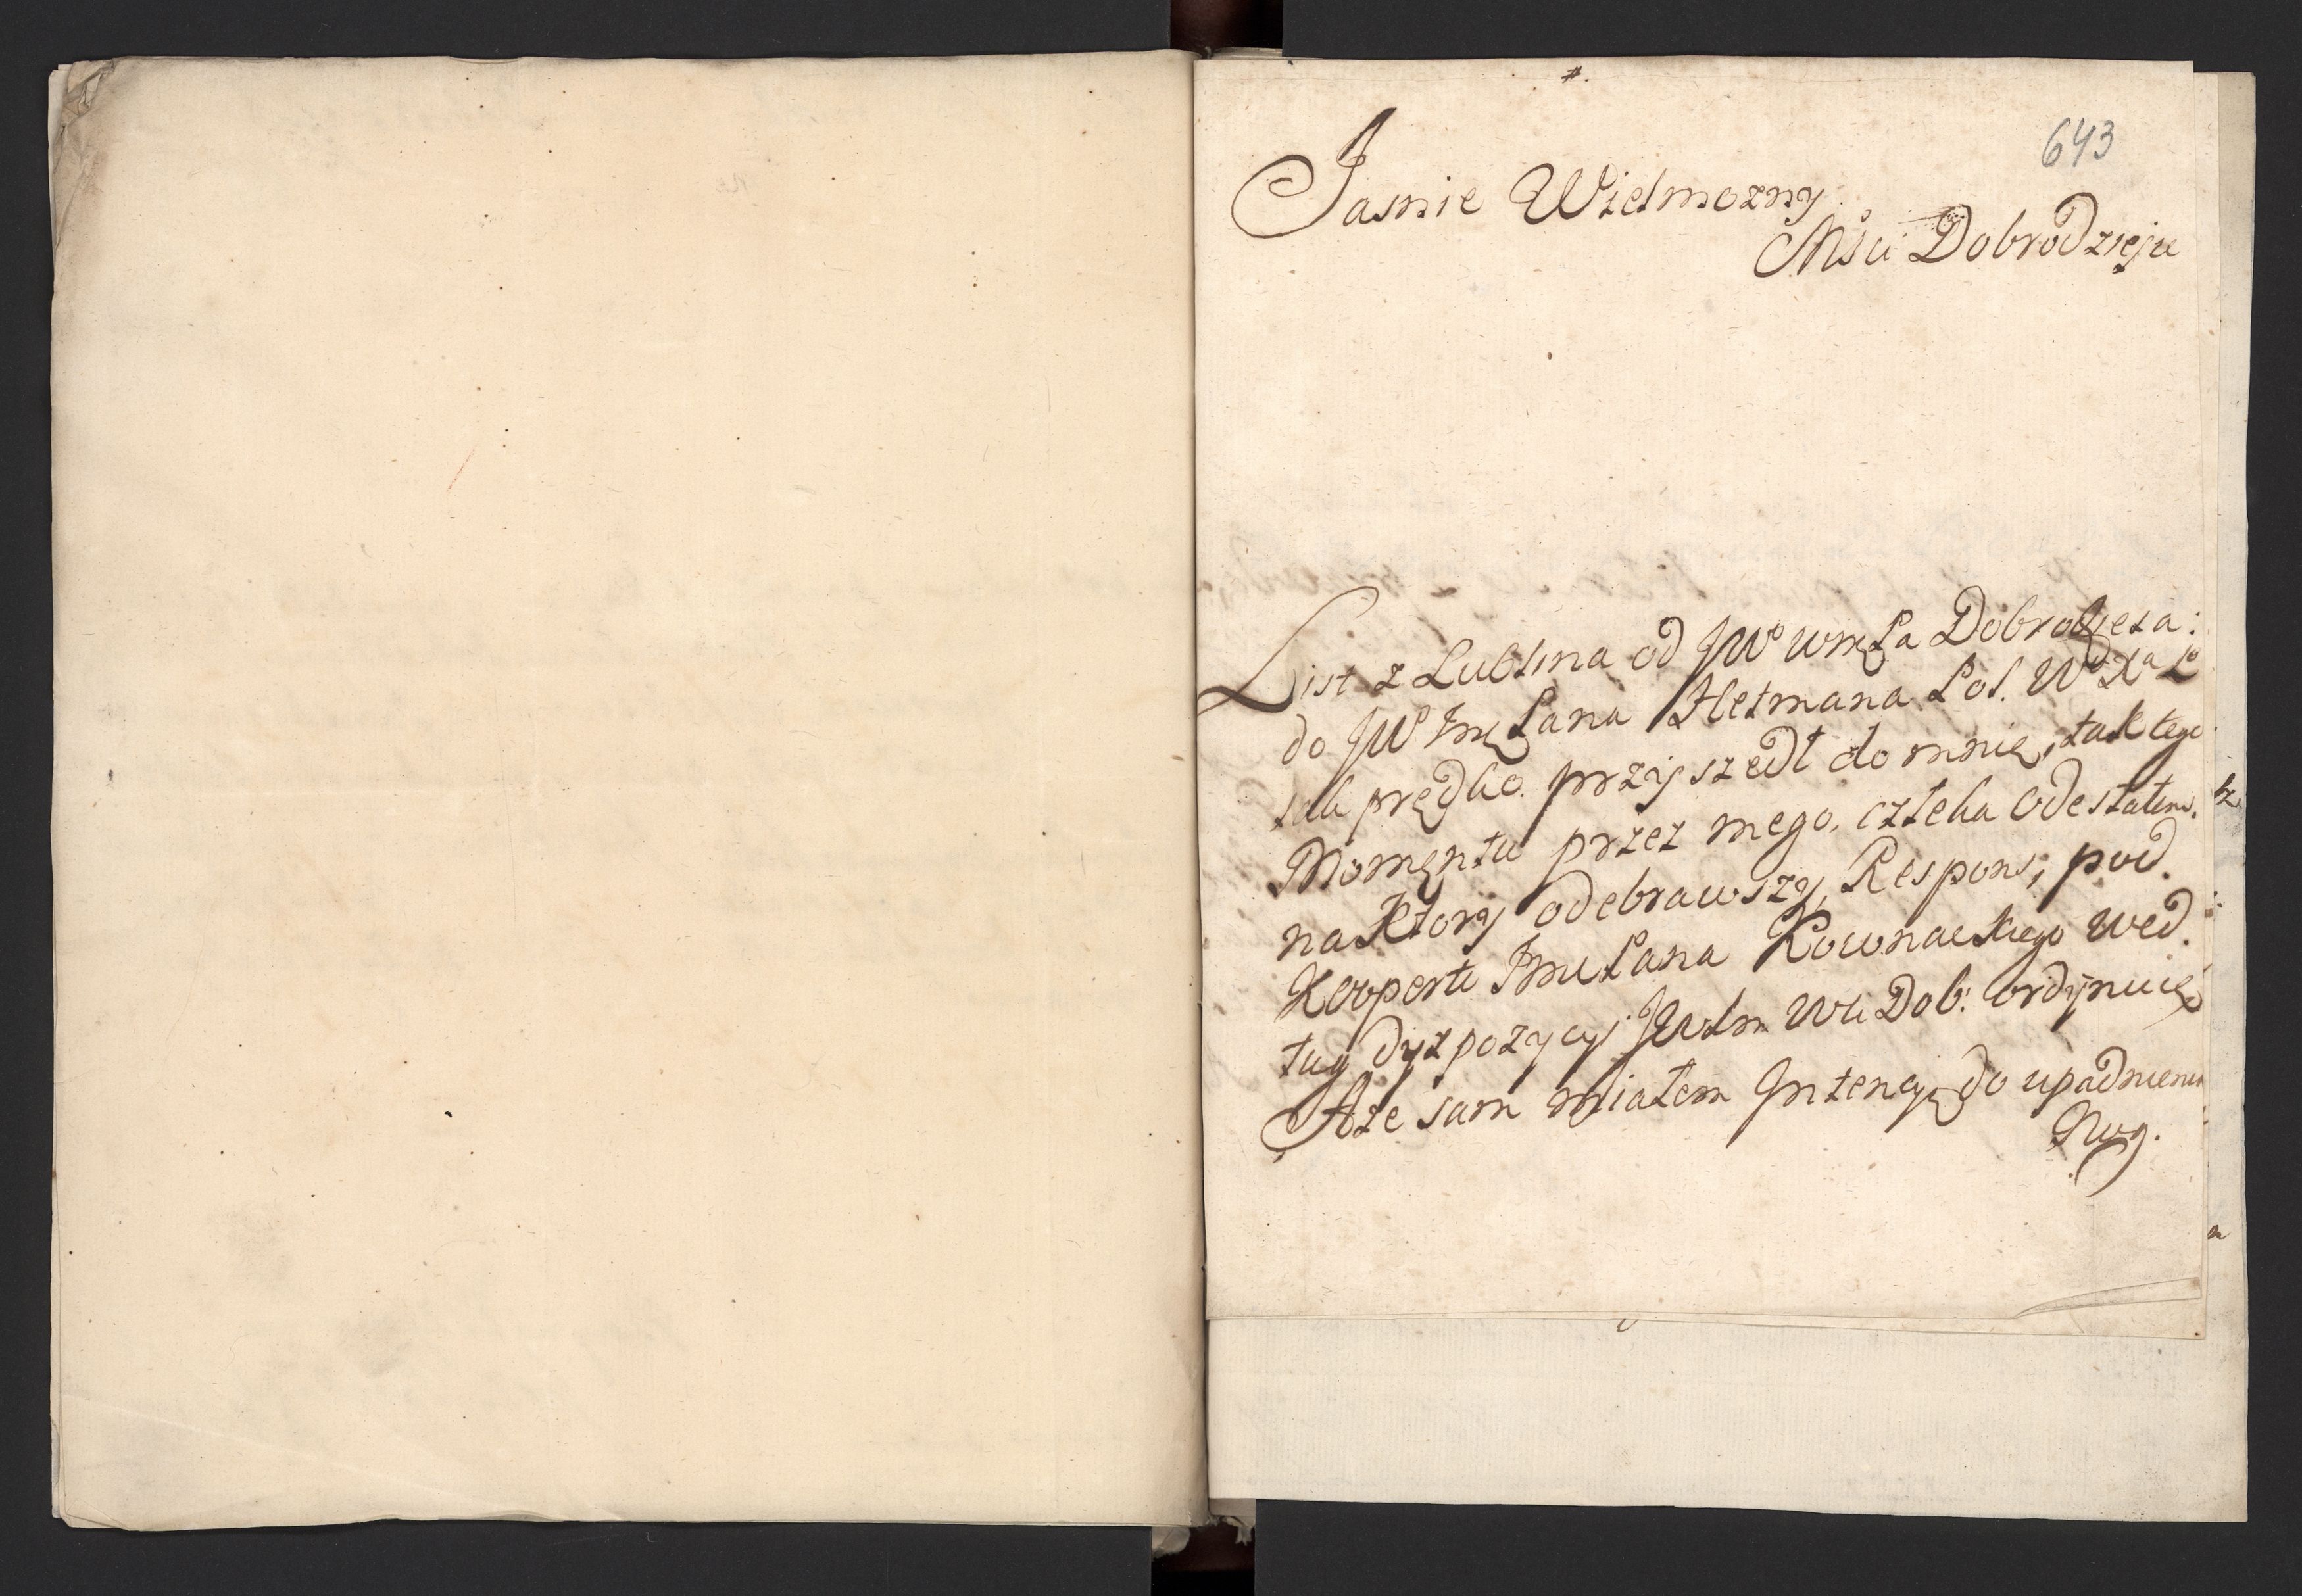 #.
643
Jasnie Wielmozny
Msci Dobrodzieju
List z Lublina od JWo WMęPa Dobrodzieia:
do JWo Jmę Pana Hetmana Pol. Wo Xa Lo
jak prędko. przyszedł do mnię, tak tego
Momentu przez mego, człeka Odesłałem.
na Ktory odebrawszy, Respons, pod.
Koopertę Jmci Pana Kownackiego wed.
ług dyzpozycyi JWlm Wci Dob: ordynuię
Aże sam miałem Jntencyę do upadnienia
Nog.